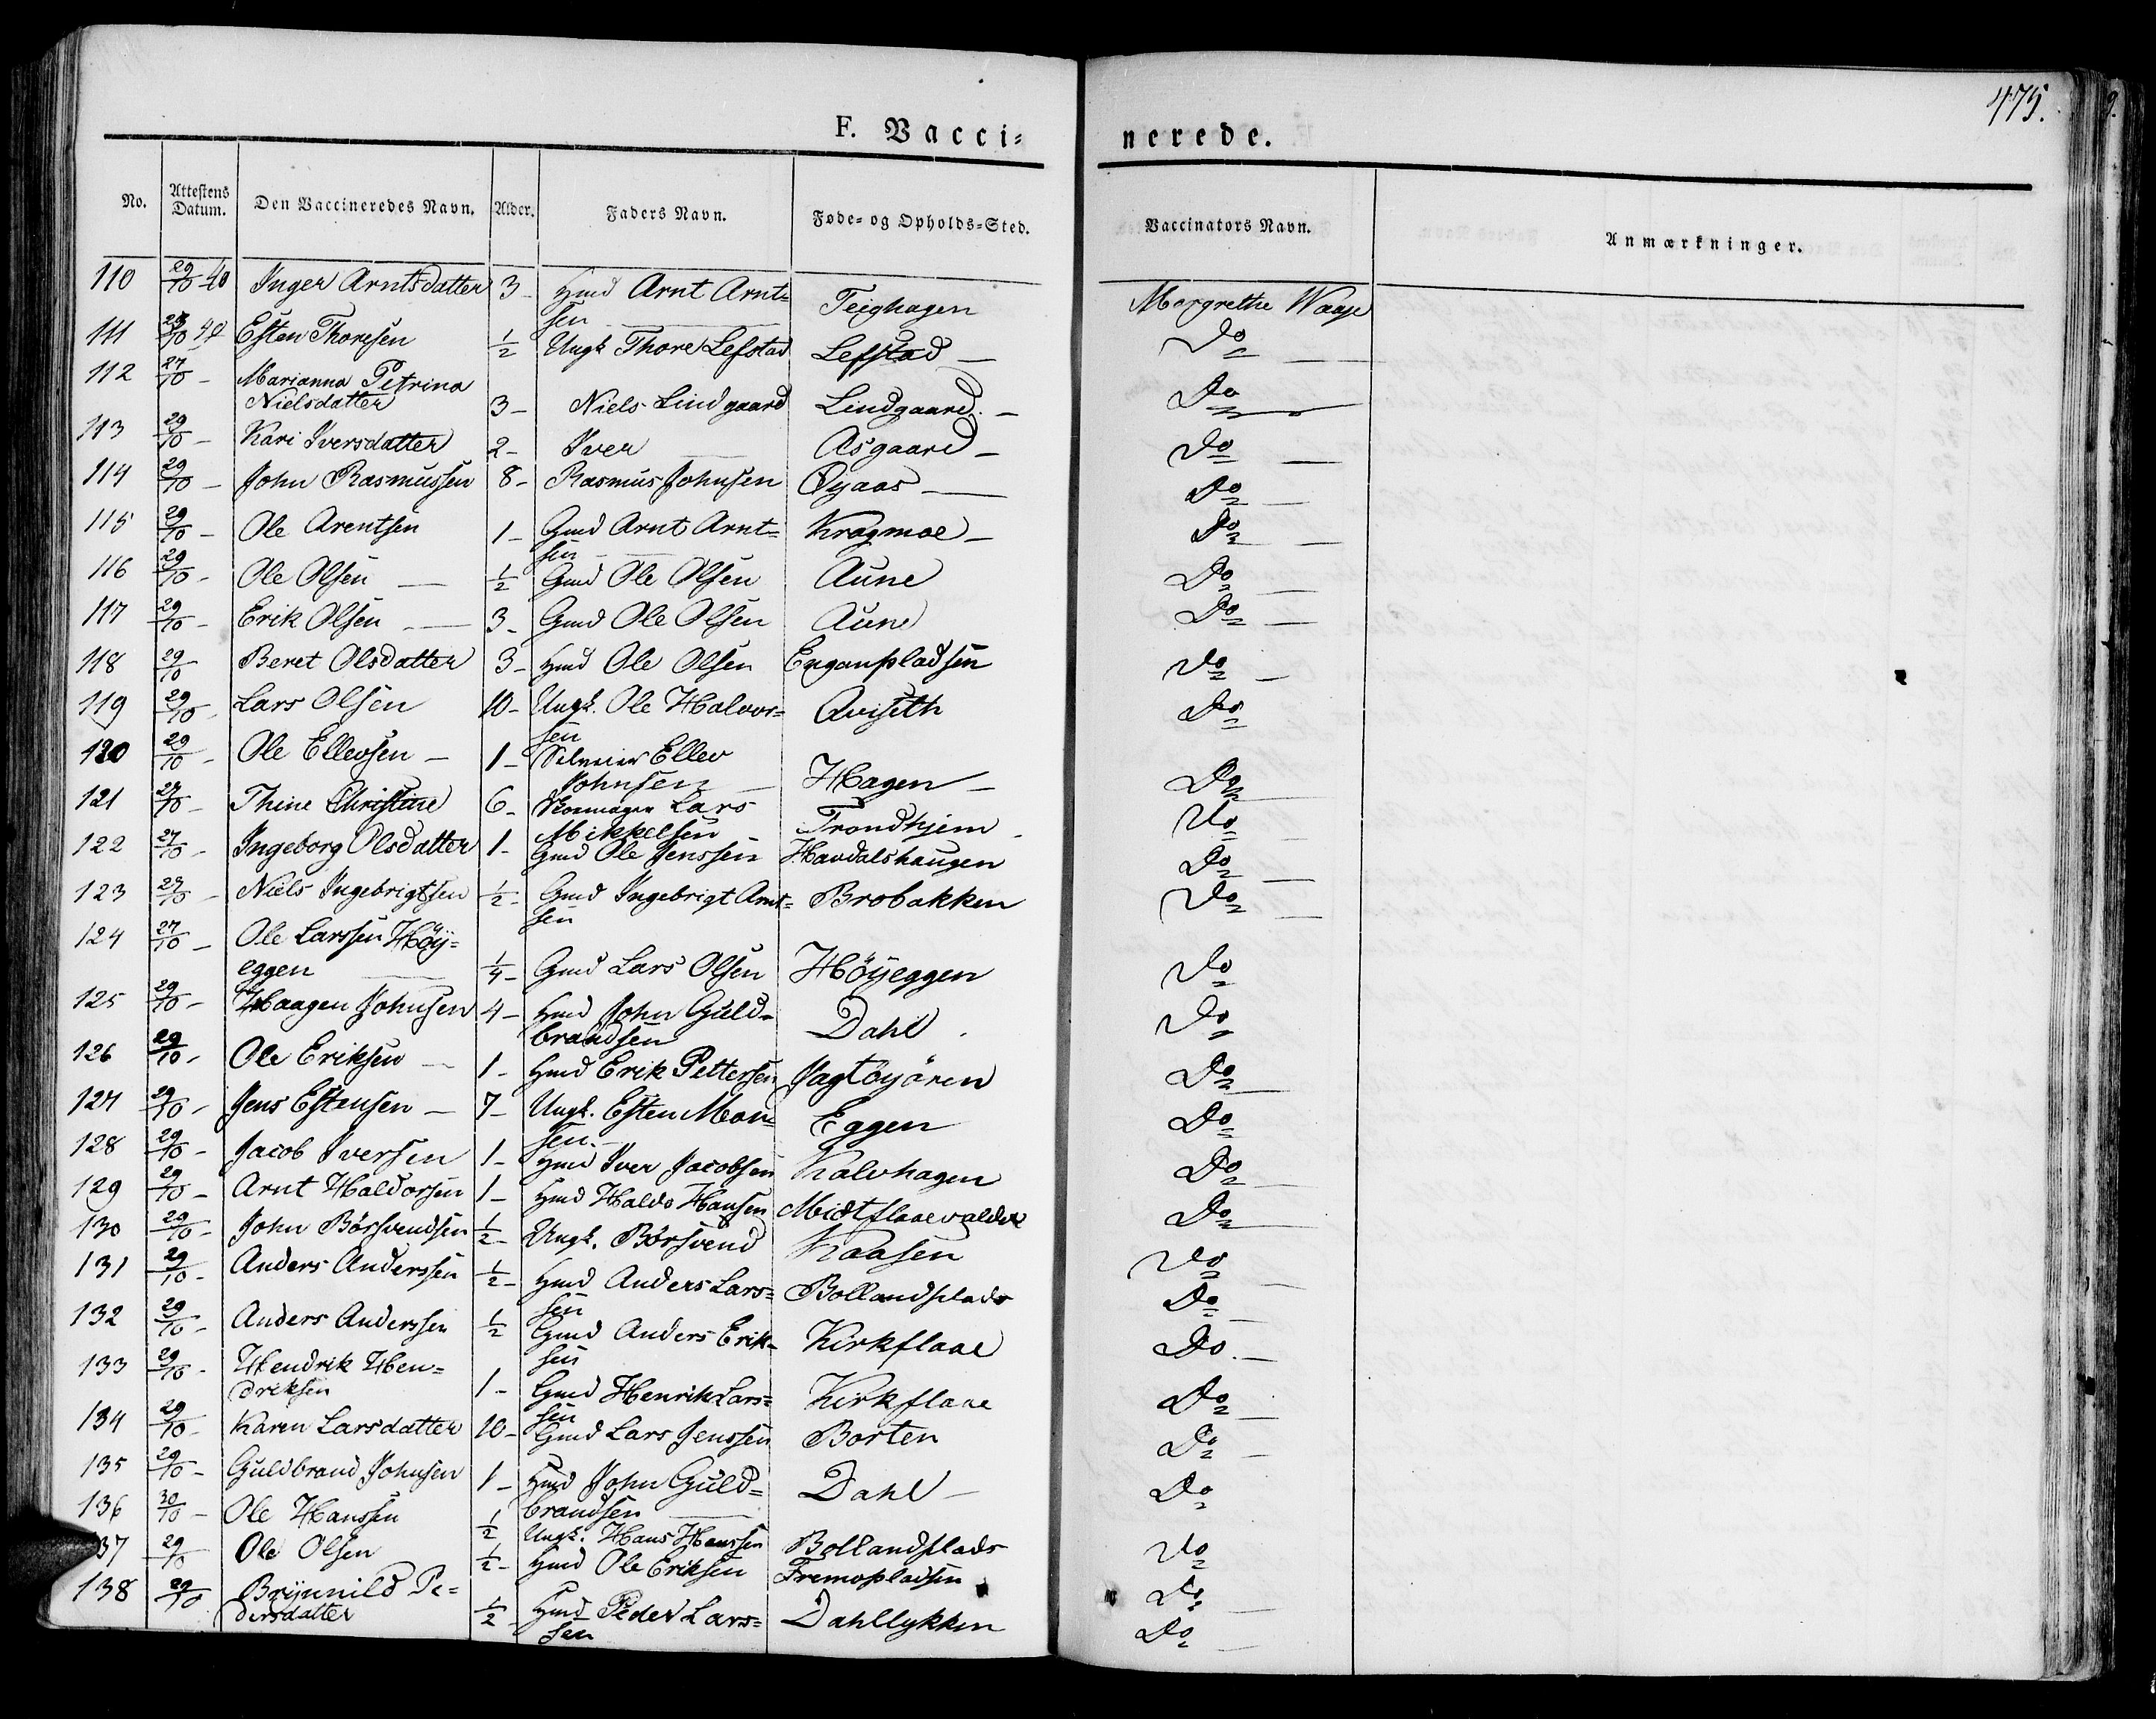 475.
F. Vacci-
nerede.
No. Attestens Datum. Den Vaccineredes Navn. Alder. Faders Navn. Føde- og Opholds-Sted. Vaccinators Navn. Anmærkninger.
110 29/10 40 Inger Arntsdatter 3- Hmd Arnt Arnt=
sen Teighagen Margrethe Waage
111 40 Esten Thoresen 1/2 Ungk Thore Lefstad Lefstad - Do
112 27/10 - Marianna Petrina
Nielsdatter 3- Niels Lindgaard Lindgaard - Do
113 29/10 - Kari Iversdatter 2- Iver Asgaard - Do
114 29/10 - John Rasmussen 8- Rasmus Johnsen Øyaas - Do
115 29/10 - Ole Arentsen 1- Gmd Arnt Arnt=
sen Kragmoe - Do
116 29/10 - Ole Olsen 1/2 Gmd Ole Olsen Aune Do
117 29/10 - Erik Olsen 3- Gmd Ole Olsen Aune Do
118 29/10 Beret Olsdatter 3- Hmd Ole Olsen Do
119 29/10 - Lars Olsen 10- Ungk. Ole Halvor=
sen Qviseth Do
120 29/10 - Ole Ellevsen - 1- Ellev
Johnsen Hagen - Do
121 27/10 - Thine Christine 6- Lars
Mikkelsen Trondhjem Do
122 27/10 - Ingeborg Olsdatter 1- Gmd Ole Jenssen Havdalshaugen Do
123 27/10 - Niels Ingebrigtsen 1/2- Gmd Ingebrigt Arnt=
sen Brobakken Do
124 27/10 - Ole Larssen Höy=
eggen 1/4- Gmd Lars Olsen Höyeggen Do
125 29/10 - Haagen Johnsen 4- Hmd John Guld=
brandsen Dahl Do
126 29/10 - Ole Eriksen 1- Hmd Erik Pettersen Jagtöyören Do
127 29/10 - Jens Estensen - 7- Ungk. Esten Mon=
sen. Eggen Do
128 29/10 - Jacob Iversen 1- Hmd Iver Jacobsen Kalvhagen Do
129 29/10 - Arnt Haldorsen 1- Hmd Haldo Hansen Midtflaaevaldet Do
130 29/10 - John Börsvendsen 1/2- Ungk. Börsvend Kaasen Do
131 29/10 - Anders Anderssen 1/2- Hmd Anders Lars=
sen Bollandplads Do
132 29/10 - Anders Anderssen 1/2 Gmd Anders Erik=
sen Kirkflaae Do. -
133 29/10 - Hendrik Hen=
driksen 1- Gmd Henrik Lars=
sen Kirkflaae Do
134 29/10 - Karen Larsdatter 10- Gmd Lars Jenssen Borten Do
135 29/10 - Guldbrand Johnsen 1- Hmd John Guld=
brandsen Dahl - Do
136 30/10 - Ole Hanssen 1/2 Ungk. Hans Hanssen Bollandplads Do
37 29/10 Ole Olsen 1/2- Hmd Ole Eriksen Fremopladsen Do
138 29/10 Brynnild Pe=
dersdatter 1/2 Hmd Peder Lars=
sen Dahllykken Do